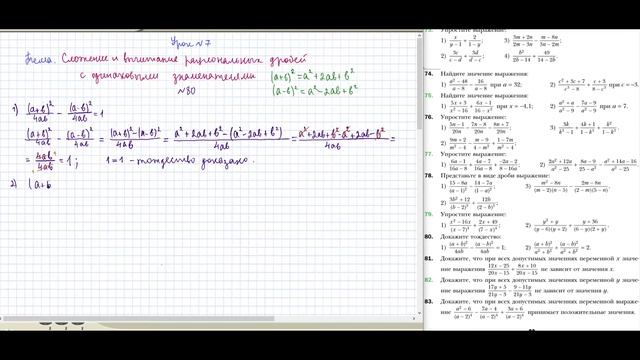 Урок №7
Тема. Сложение и вычитание рациональных дробей
с одинаковыми знаменателями (a+b)² = a² + 2ab + b²
№80 (a-b)² = a² - 2ab + b²
1) (a+b)²/4ab - (a-b)²/4ab = 1
(a+b)²/4ab - (a-b)²/4ab = (a+b)² - (a-b)²/4ab = a² + 2ab + b² - (a² - 2ab + b²)/4ab = a² + 2ab + b² - a² + 2ab - b²/4ab =
= 4ab/4ab = 1 ; 1 = 1 - тождество доказано.
2) (a+b
Упростите выражение:
1) x/(y-1) + 2/(1-y); 3) (3m+2n)/(2m-3n) - (m-8n)/(3n-2m);
2) 3c/(c-d) + 3d/(d-c); 4) b²/(2b-14) + 49/(14-2b).
74. Найдите значение выражения:
1) (a²-48)/(a-8) - 16/(a-8) при a = 32; 2) (c²+3c+7)/(c³-8) + (c+3)/(8-c³) при c = -3.
75. Найдите значение выражения:
1) (5x+3)/(x²-16) + (6x-1)/(16-x²) при x = -4,1; 2) (a²+a)/(a²-9) - (7a-9)/(a²-9) при a = 7.
76. Упростите выражение:
1) (5n-1)/20n - (7n-8)/20n - (8n+7)/20n; 3) 3k/(k³-1) + (4k+1)/(1-k³) + k²/(1-k³).
2) (9m+2)/(m²-4) - (m-9)/(4-m²) + (1-7m)/(m²-4);
77. Упростите выражение:
78. Представьте в виде дроби выражение:
1) (15-8a)/(a-1)² - (14-7a)/(1-a)²; 3) m²-8n/(m-2)(n-5) - 2m-8n/(2-m)(5-n).
2) (3b²+12)/(b-2)³ + 12b/(2-b)³;
79. Упростите выражение:
1) (x²-16x)/(x-7)⁴ + (2x+49)/(7-x)⁴; 2) y²+y/(y-6)(y+2) + y+36/(6-y)(2+y).
80. Докажите тождество:
1) (a+b)²/4ab - (a-b)²/4ab = 1; 2) (a+b)²/(a²+b²) + (a-b)²/(a²+b²) = 2.
81. Докажите, что при всех допустимых значениях переменной x значе-
ние выражения (12x-25)/(20x-15) + (8x+10)/(20x-15) не зависит от значения x.
82. Докажите, что при всех допустимых значениях переменной y значе-
ние выражения (17y+5)/(21y-3) - (9-11y)/(21y-3) не зависит от значения y.
83. Докажите, что при всех допустимых значениях переменной выраже-
ние (a²-6)/(a-2)⁴ - (7a-4)/(a-2)⁴ + (3a+6)/(a-2)⁴ принимает положительные значения.